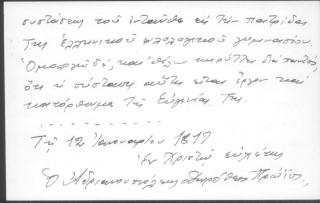 συστάσεως τοῦ ἐνταῦθα εἰς τὴν πατρίδα
Της ἑλληνικοῦ φιλολογικοῦ γυμνασίου.
Ὁμολογῶ δέ, καὶ θέλω κηρύττει διὰ παντός,
ὅτι ἡ σύστασις αὕτη εἶναι ἔργον καὶ
κατόρθωμα τῆς Εὐγενίας Της.
- - - - - - - - - - - -
Τῇ 12 Ἰανουαρίου 1819
Ἐν Χριστῷ εὐχέτης
Ὁ Ἀδριανουπόλεως Δωρόθεος Πρώϊος.